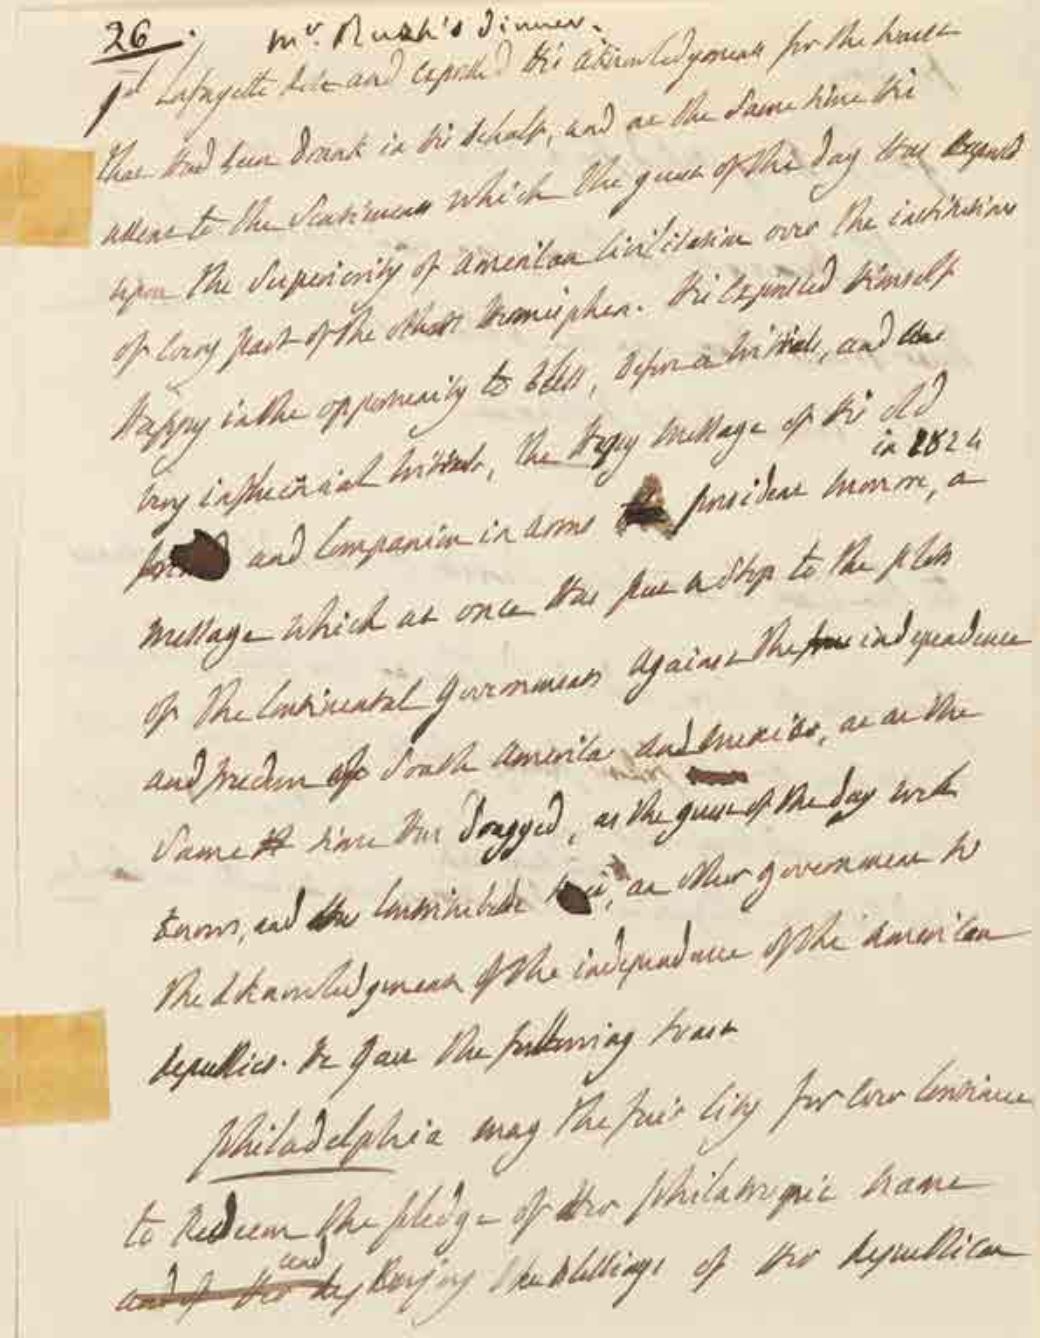 26. Mr. Rush's Dinner.
Gl Lafayette rose and expressed his acknowledgement for the toast
that had been drank in his behalf, and at the same time his
to the sentiments which the guest of the day has expressed
upon the superiority of american civilisation over the institutions
of every part of the other hemisphere. he expressed himself
happy in the opportunity to bless, before a British, and
very influencial British, the happy message of his old
and Companion in arms president monroe, in 1824 a
message which at once has put a stop to the plots
of the Continental governments against the independence
and freedom of South america and mexico, as at the
same time has dragged, as the guest of the day well
knows, and the as other government to
the aknowledgement of the independance of the american
republics. he gave the following toast
Philadelphia may the fair City for ever Continue
to redeem the pledge of her philantropic name
and of her and by enjoying the blessings of her republican